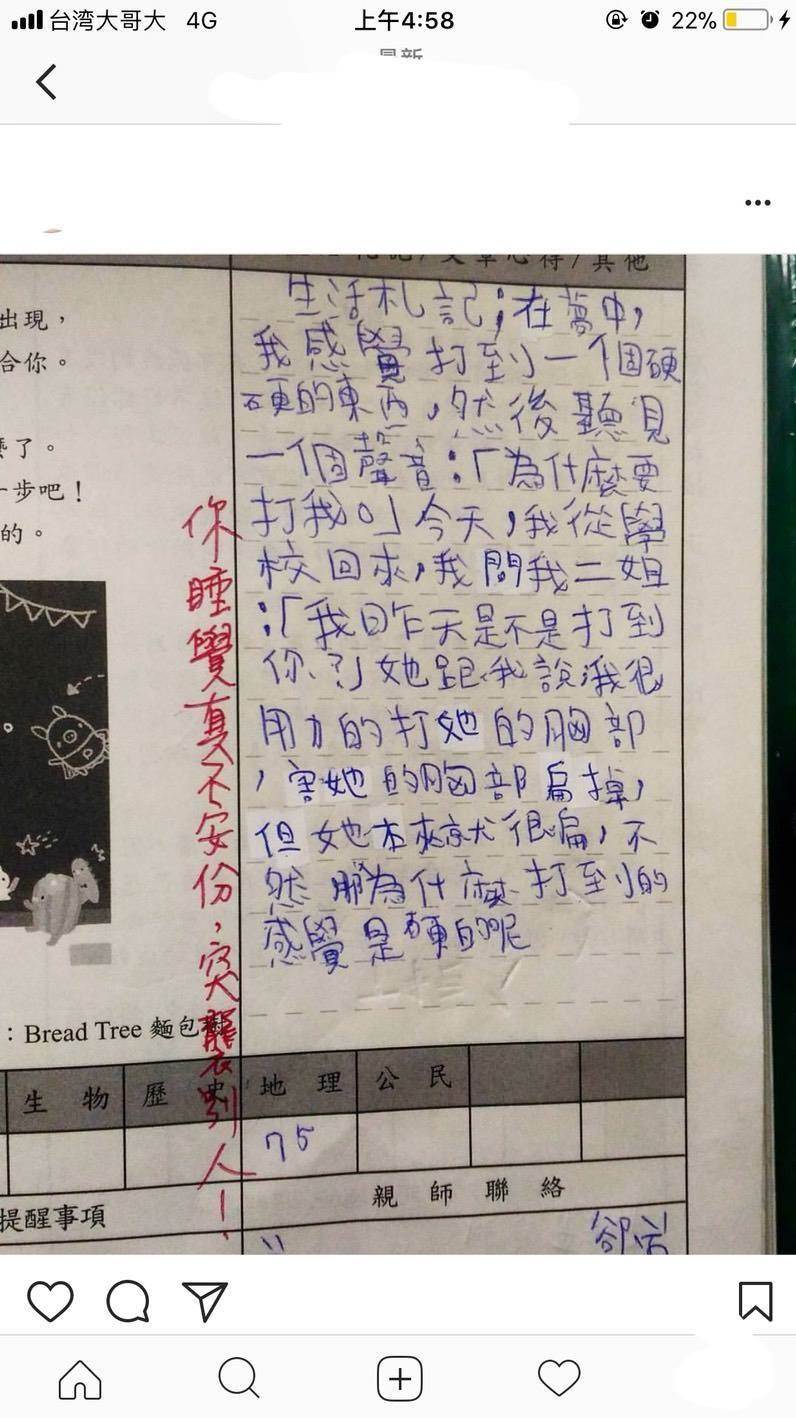 台湾大哥大 4G 上午4:58 22%
最新
札記/文章心得/其他
出現，
合你。
麼了。
一步吧！
的。
生活札記：在夢中，
我感覺打到一個硬
硬的東西，然後聽見
一個聲音：「為什麼要
打我。」今天，我從學
校回來，我問我二姐
：「我昨天是不是打到
你？」她跟我說我很
用力的打她的胸部
，害她的胸部扁掉，
但她本來就很扁，不
然那為什麼打到的
感覺是硬的呢
你睡覺真不安份，突襲別人！
：Bread Tree 麵包樹
生物 歷史 地理 公民
75
提醒事項 親師聯絡